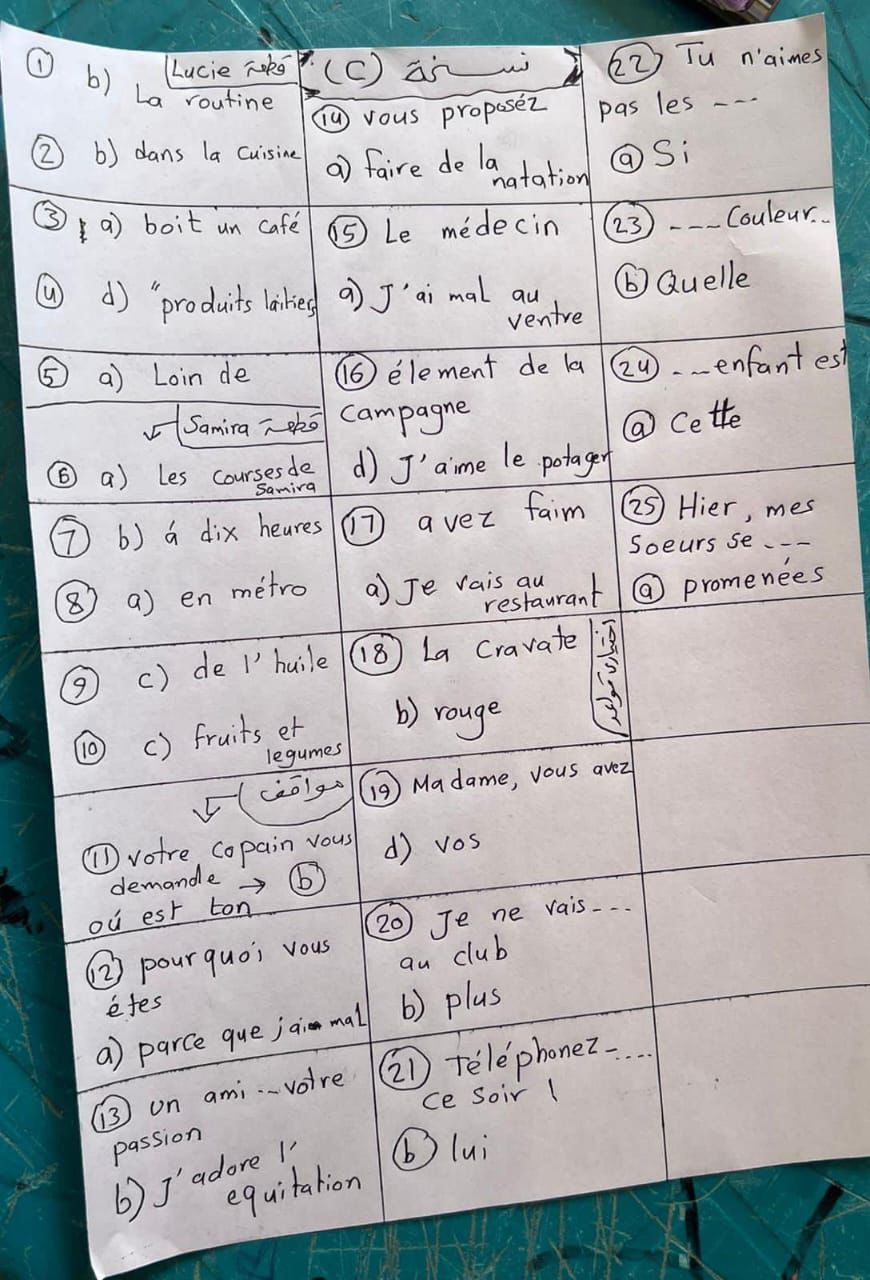 ① b) قطعة Lucie
La routine
② b) dans la cuisine
③ a) boit un café
④ d) "produits laitiers
⑤ a) Loin de
قطعة Samira
⑥ a) Les courses de
Samira
⑦ b) á dix heures
⑧ a) en métro
⑨ c) de l'huile
⑩ c) fruits et
legumes
مواقف
⑪ votre copain vous
demande → ⓑ
oú est ton
⑫ pourquoi vous
étes
a) parce que j'ai mal
⑬ un ami ... votre
passion
b) J'adore l'
equitation
نسخة (C)
⑭ vous proposéz
a) faire de la
natation
⑮ Le médecin
a) J'ai mal au
ventre
⑯ élement de la
campagne
d) J'aime le potager
⑰ avez faim
a) Je vais au
restaurant
⑱ La cravate
b) rouge
اختياري قواعد
⑲ Madame, vous avez
d) vos
⑳ Je ne vais ---
au club
b) plus
㉑ Téléphonez -....
ce soir !
ⓑ lui
㉒ Tu n'aimes
pas les ---
ⓐ Si
㉓ --- Couleur..
ⓑ Quelle
㉔ ---enfant est
ⓐ Cette
㉕ Hier, mes
soeurs se ---
ⓐ promenées